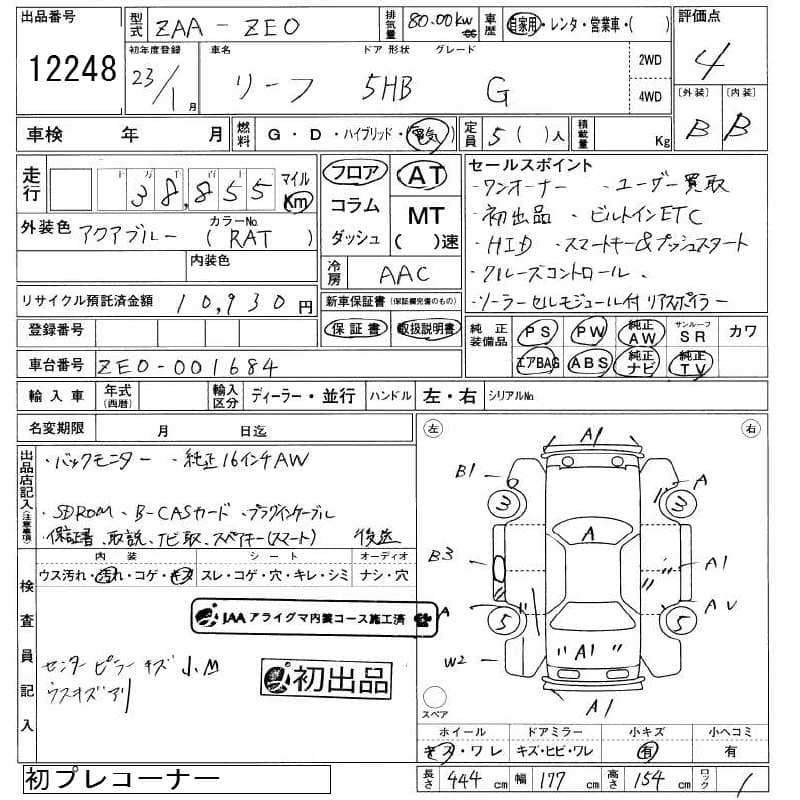 出品番号 型式 ZAA-ZE0 排気量 80.00kw cc 車歴 自家用・レンタ・営業車・( ) 評価点
12248 初年度登録 23/1月 車名 リーフ ドア 形状 5HB グレード G 2WD 4WD 4
〔外装〕 B 〔内装〕 B
車検 年 月 燃料 G・D・ハイブリッド・(電気) 定員 5( )人 積載量 Kg
走行 十万 38,855 マイル Km フロア AT セールスポイント
コラム MT
ダッシュ ( )速
・ワンオーナー ・ユーザー買取
・初出品 ・ビルトインETC
・HID ・スマートキー&プッシュスタート
・クルーズコントロール、
・ソーラーセルモジュール付リアスポイラー
外装色 アクアブルー カラーNo. (RAT)
内装色 冷房 AAC
リサイクル預託済金額 10,930円 新車保証書(保証欄完備のもの)
登録番号 保証書 取扱説明書 純正装備品 PS PW 純正AW サンルーフSR カワ
車台番号 ZE0-001684 エアBAG ABS 純正ナビ 純正TV
輸入車 年式(西暦) 輸入区分 ディーラー・並行 ハンドル 左・右 シリアルNo.
名変期限 月 日迄
出品店記入(注意事項)
・バックモニター ・純正16インチAW
・SDROM、B-CASカード・プラグインケーブル
・保証書、取説、ナビ取、スペアキー(スマート) 後送
内装 シート オーディオ
ウス汚れ・汚れ・コゲ・キズ スレ・コゲ・穴・キレ・シミ ナシ・穴
検査員記入
JAA アライグマ内装コース施工済
センターピラーキズ小、M
ウスキズアリ
初出品
左 右
A1
B1 A
3 3
A
B3 A1
A AV
5 5
W2 A1
A1
スペア
ホイール ドアミラー 小キズ 小ヘコミ
キズ・ワレ キズ・ヒビ・ワレ 有 有
初プレコーナー
長さ 444cm 幅 177cm 高さ 154cm ロック /